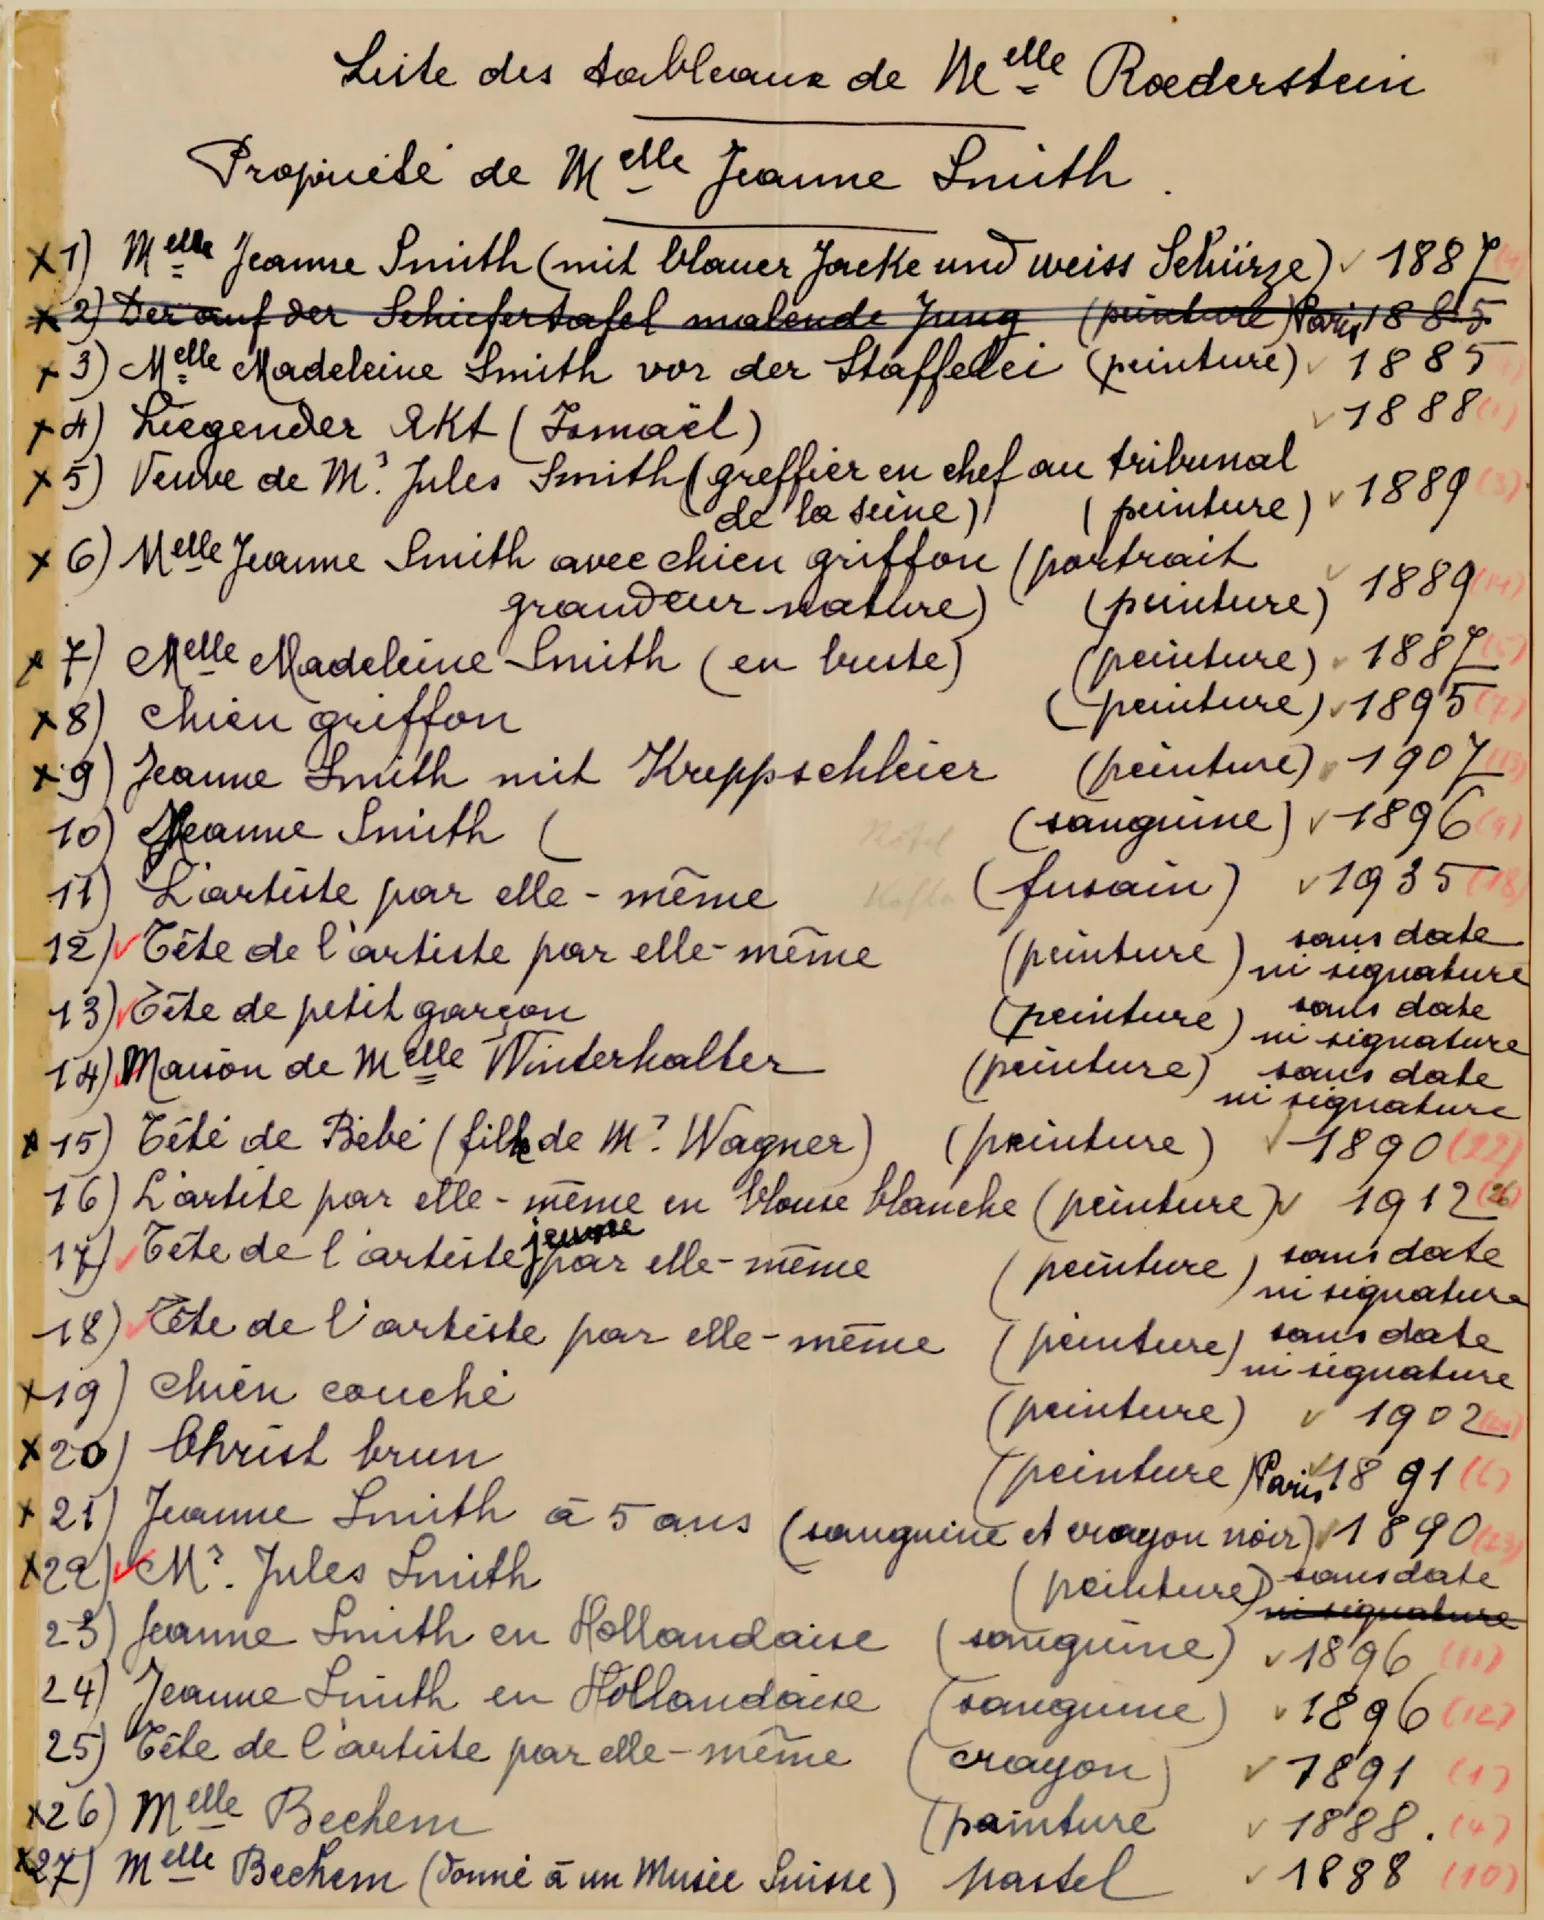 Liste des tableaux de Melle Rœderstein
Propriété de Melle Jeanne Smith.
x 1) Melle Jeanne Smith (mit blauer Jacke und weiss Schürze) ✓ 1887
x 2) Der auf der Schiefertafel malende Jung (peinture) Paris 1885
x 3) Melle Madeleine Smith vor der Staffelei (peinture) ✓ 1885
x 4) Liegender Akt (Ismaël) ✓ 1888 (1)
x 5) Veuve de Mr. Jules Smith (greffier en chef au tribunal
de la seine) (peinture) ✓ 1889 (3)
x 6) Melle Jeanne Smith avec chien griffon (portrait
grandeur nature) (peinture) ✓ 1889 (14)
x 7) Melle Madeleine Smith (en buste) (peinture) ✓ 1887 (5)
x 8) chien griffon (peinture) ✓ 1895 (7)
x 9) Jeanne Smith mit Kreppschleier (peinture) ✓ 1907 (13)
10) Jeanne Smith ( Rötel (sanguine) ✓ 1896 (9)
11) L'artiste par elle-même (fusain) ✓ 1935 (18)
12) ✓ Tête de l'artiste par elle-même (peinture) sans date
ni signature
13) ✓ Tête de petit garçon (peinture) sans date
ni signature
14) ✓ Maison de Melle Winterhalter (peinture) sans date
ni signature
x 15) Tête de Bébé (fille de Mr. Wagner) (peinture) ✓ 1890 (22)
16) L'artite par elle-même en blouse blanche (peinture) ✓ 1912 (26)
17) ✓ Tête de l'artiste jeune par elle-même (peinture) sans date
ni signature
18) ✓ Tête de l'artiste par elle-même (peinture) sans date
ni signature
x 19) chien couché (peinture) ✓ 1902
x 20) Christ brun (peinture) Paris ✓ 1891 (6)
x 21) Jeanne Smith à 5 ans (sanguine et crayon noir) ✓ 1890 (23)
x 22) ✓ Mr. Jules Smith (peinture) sans date
ni signature
23) Jeanne Smith en Hollandaise (sanguine) ✓ 1896 (11)
24) Jeanne Smith en Hollandaise (sanguine) ✓ 1896 (12)
25) Tête de l'artiste par elle-même (crayon) ✓ 1891 (1)
x 26) Melle Bechem (peinture ✓ 1888. (4)
x 27) Melle Bechem (donné à un Musée Suisse) pastel ✓ 1888 (10)